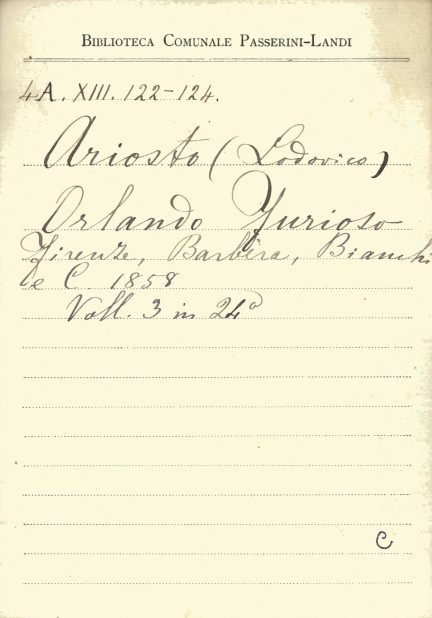 BIBLIOTECA COMUNALE PASSERINI-LANDI
4A. XIII. 122-124.
Ariosto (Lodovico)
Orlando Furioso
Firenze, Barbèra, Bianchi
e C. 1858
Voll. 3 in 24°
C